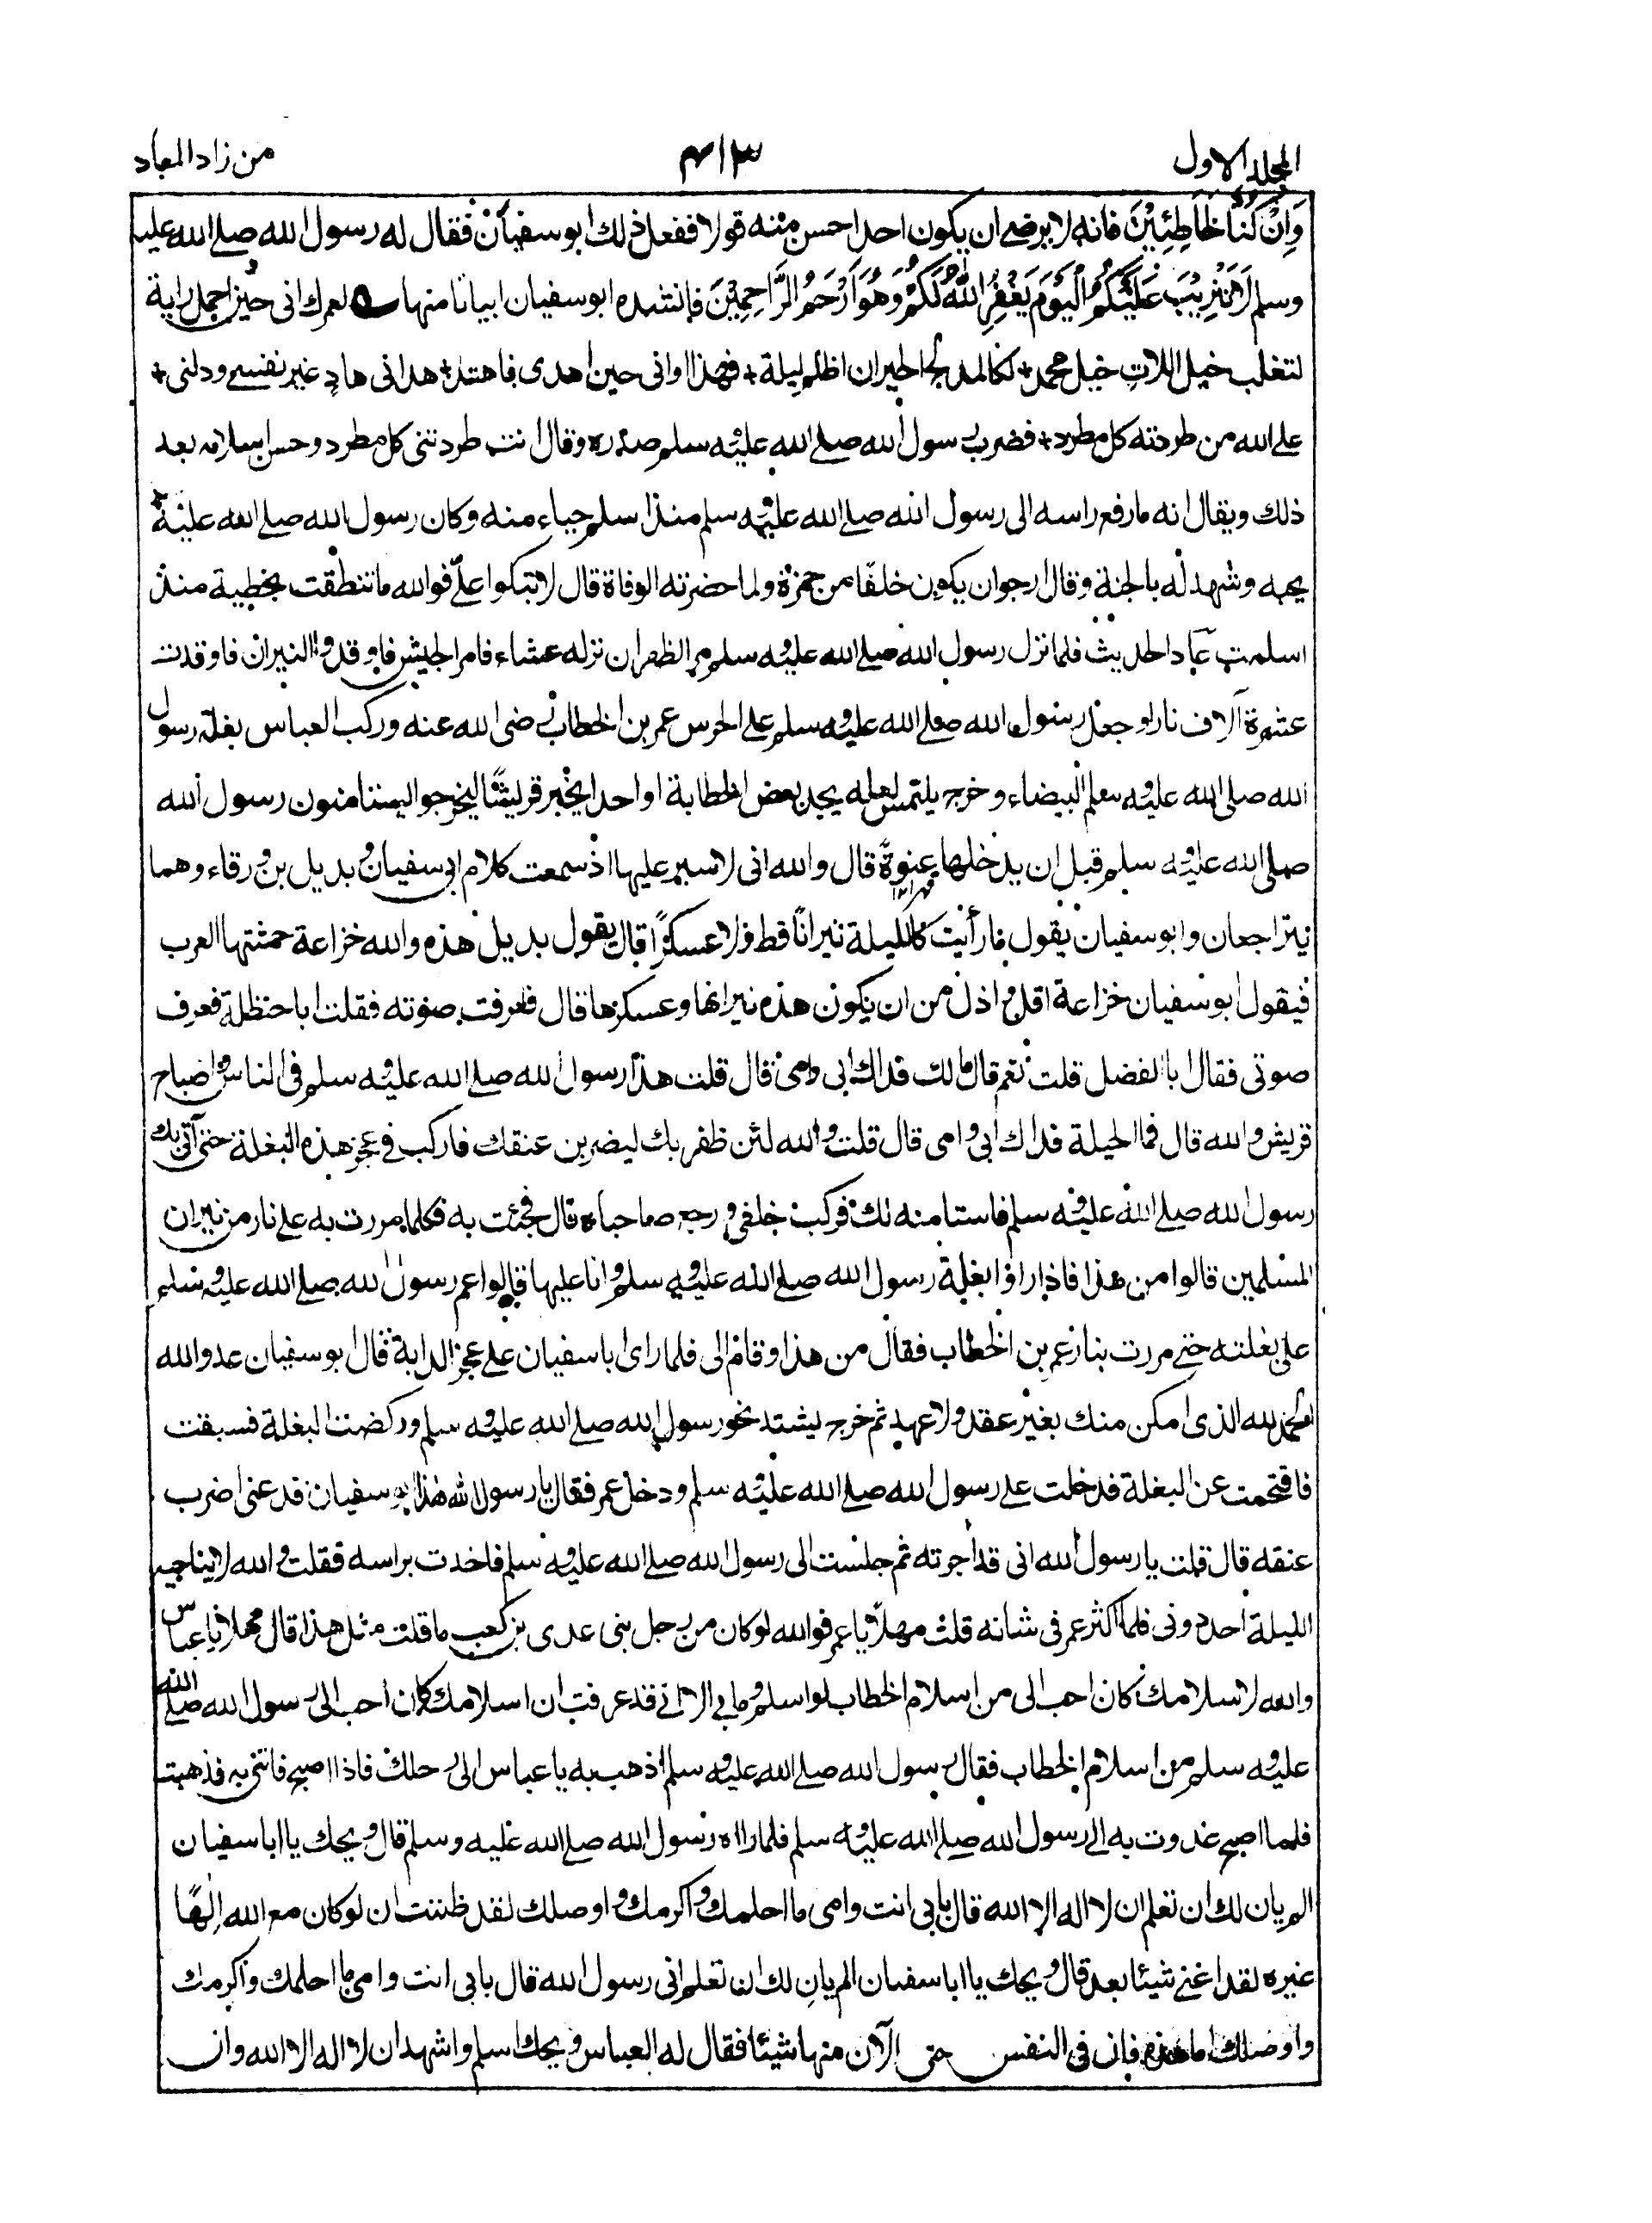 المجلد الاول ٤١٣ من زاد المعاد
وَاِنْ كُنَّا خَاطِئِيْنَ فانه لا يرضى ان يكون احد احسن منه قولا ففعل ذلك ابو سفيان فقال له رسول الله صلى الله عليه
وسلم لَا تَثْرِيْبَ عَلَيْكُمُ الْيَوْمَ يَغْفِرُ اللهُ لَكُمْ وَهُوَ اَرْحَمُ الرَّاحِمِيْنَ فانشده ابو سفيان ابياتا منها ؎ لعمرك انى حين احمل راية
لتغلب خيل اللاتِ خيل محمد + لكالمدلج الحيران اظلم ليلة + فهذا اوانى حين اهدى فاهتد + هدانى هادٍ غير نفسى ودلنى +
على الله من طردته كل مطرد + فضرب رسول الله صلى الله عليه وسلم صدره وقال انت طردتنى كل مطرد وحسن اسلامه بعد
ذلك ويقال انه ما رفع راسه الى رسول الله صلى الله عليه وسلم منذ اسلم حياء منه وكان رسول الله صلى الله عليه و
يحبه وشهد له بالجنة وقال ارجو ان يكون خلفًا من حمزة ولما حضرته الوفاة قال لا تبكوا علىّ فوالله ما تنطقت بخطية منذ
اسلمت عاد الحديث فلما نزل رسول الله صلى الله عليه وسلم مر الظهران نزله عشاء فامر الجيش فاوقدوا النيران فاوقدت
عشرة آلاف نار وجعل رسول الله صلى الله عليه وسلم على الحرس عمر بن الخطاب رضى الله عنه وركب العباس بغلة رسول
الله صلى الله عليه وسلم البيضاء وخرج يلتمس لعله يجد بعض الحطابة او احدا يخبر قريشًا ليخرجوا ليستامنون رسول الله
صلى الله عليه وسلم قبل ان يدخلها عنوةً قال والله انى لاسير عليها اذ سمعت كلام ابى سفيان وبديل بن ورقاء وهما
يتراجعان وابو سفيان يقول ما رأيت كالليلة نيرانًا قط ولا عسكرًا قال يقول بديل هذه والله خزاعة حمشتها العرب
فيقول ابو سفيان خزاعة اقل واذل من ان يكون هذه نيرانها وعسكرها قال فعرفت صوته فقلت ابا حنظلة فعرف
صوتى فقال ابا الفضل قلت نعم قال مالك فداك ابى وامى قال قلت هذا رسول الله صلى الله عليه وسلم فى الناس واصباح
قريش والله قال فما الحيلة فداك ابى وامى قال قلت والله لئن ظفر بك ليضربن عنقك فاركب فى عجز هذه البغلة حتى آتى بك
رسول الله صلى الله عليه وسلم فاستامنه لك فركب خلفى ورجع صاحباه قال فجئت به فكلما مررت به على نار من نيران
المسلمين قالوا من هذا فاذا راوا بغلة رسول الله صلى الله عليه وسلم وانا عليها قالوا عم رسول الله صلى الله عليه وسلم
على بغلته حتى مررت بنار عمر بن الخطاب فقال من هذا وقام الى فلما راى ابا سفيان على عجز الدابة قال ابو سفيان عدو الله
الحمد لله الذى امكن منك بغير عقد ولا عهد ثم خرج يشتد نحو رسول الله صلى الله عليه وسلم وركضت البغلة فسبقت
فاقتحمت عن البغلة فدخلت على رسول الله صلى الله عليه وسلم ودخل عمر فقال يا رسول الله هذا ابو سفيان فدعنى اضرب
عنقه قال قلت يا رسول الله انى قد اجرته ثم جلست الى رسول الله صلى الله عليه وسلم فاخذت براسه فقلت والله لا يناجيه
الليلة احد دونى فلما اكثر عمر فى شانه قلت مهلا يا عمر فوالله لو كان من رجل بنى عدى بن كعب ما قلت مثل هذا قال مهلا يا عباس
والله لاسلامك كان احب الى من اسلام الخطاب لو اسلم وما بى الا انى قد عرفت ان اسلامك كان احب الى رسول الله صلى الله
عليه وسلم من اسلام الخطاب فقال رسول الله صلى الله عليه وسلم اذهب به يا عباس الى رحلك فاذا اصبح فاتنى به فذهبت
فلما اصبح غدوت به الى رسول الله صلى الله عليه وسلم فلما راه رسول الله صلى الله عليه وسلم قال ويحك يا ابا سفيان
الم يان لك ان تعلم ان لا اله الا الله قال بابى انت وامى ما احلمك واكرمك واوصلك لقد ظننت ان لو كان مع الله اِلٰهًا
غيره لقد اغنى شيئا بعد قال ويحك يا ابا سفيان الم يانِ لك ان تعلم انى رسول الله قال بابى انت وامى ما احلمك واكرمك
واوصلك اما هذه فان فى النفس حتى الآن منها شيئا فقال له العباس ويحك اسلم واشهد ان لا اله الا الله وان